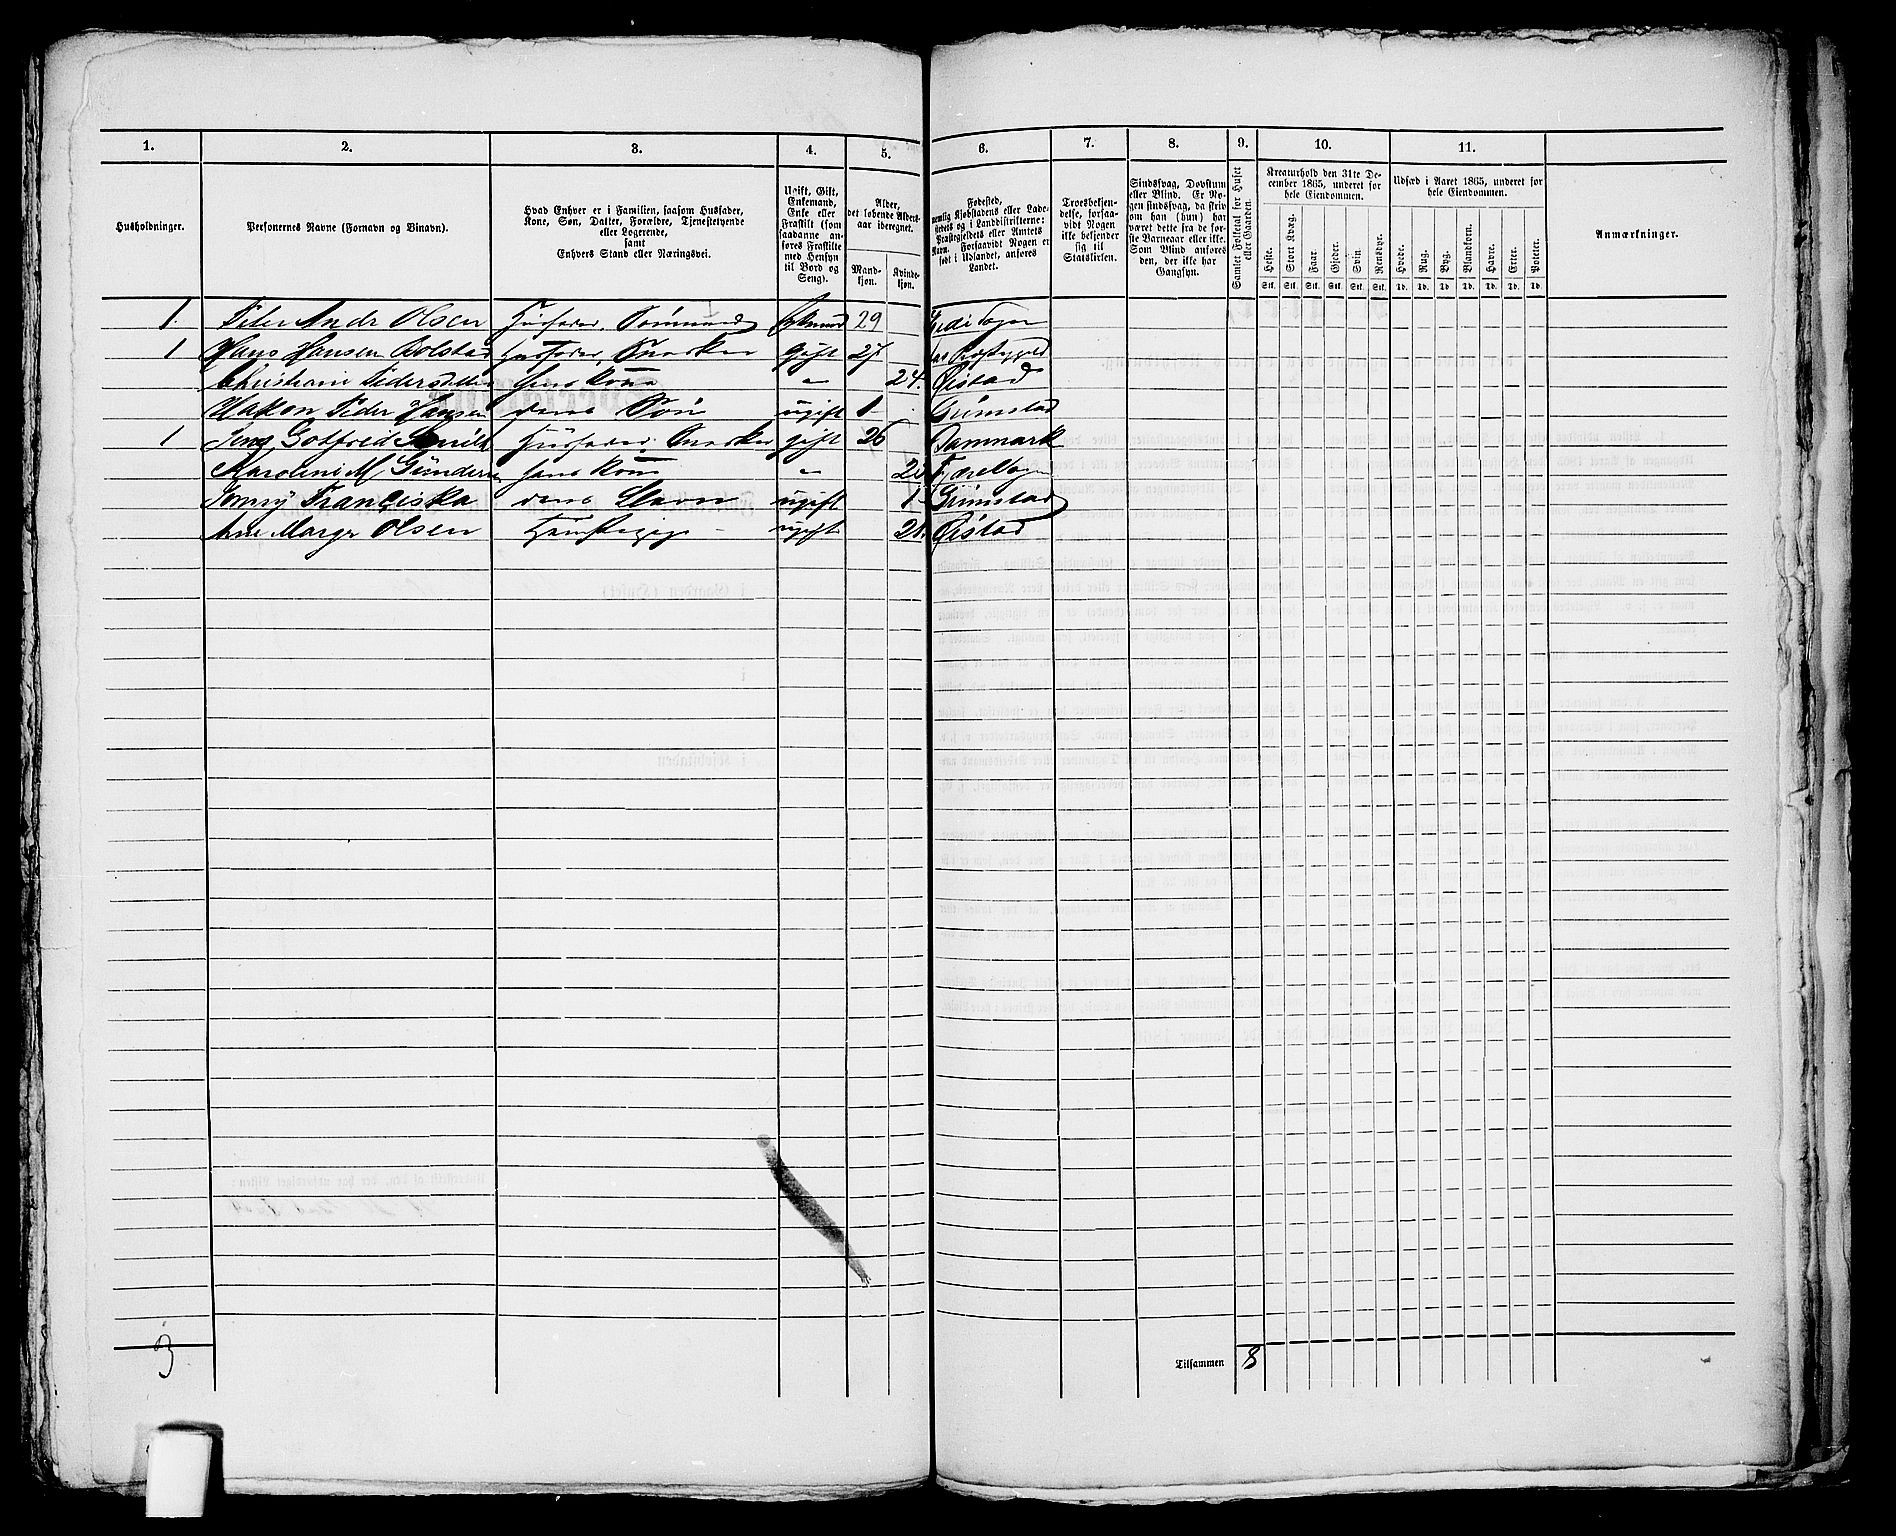 1. 2. 3. 4. 5. 6. 7. 8. 9. 10. 11.
Husholdninger.
Personernes Navne (Fornavn og Binavn).
Hvad Enhver er i Familien, saasom Husfader,
Kone, Søn, Datter, Forældre, Tjenestetyende
eller Logerende,
samt
Enhvers Stand eller Næringsvei.
Ugift, Gift,
Enkemand,
Enke eller
Fraskilt (som
saadanne an-
føres Fraskilte
med Hensyn
til Bord og
Seng).
Alder,
det løbende Alders-
aar iberegnet.
Mand-
kjøn.
Kvinde-
kjøn.
Fødested,
nemlig Kjøbstadens eller Lade-
stedets og i Landdistrikterne:
Præstegjeldets eller Amtets
Navn. Forsaavidt Nogen er
født i Udlandet, anføres
Landet.
Troesbekjen-
delse, forsaa-
vidt Nogen
ikke bekjender
sig til
Statskirken.
Sindssvag, Døvstum
eller Blind. Er No-
gen sindssvag, da skriv
om han (hun) har
været dette fra de før-
ste Barneaar eller ikke.
Som Blind anføres
den, der ikke har
Gangsyn.
Samlet Folketal for Huset
eller Gaarden.
Kreaturhold den 31te De-
cember 1865, underet for
hele Eiendommen.
Heste. Stort Kvæg. Faar. Gjeder. Svin. Rensdyr.
Stk. Stk. Stk. Stk. Stk. Stk.
Udsæd i Aaret 1865, underet for
hele Eiendommen.
Hvede. Rug. Byg. Blandkorn. Havre. Erter. Poteter.
Td. Td. Td. Td. Td. Td. Td.
Anmærkninger.
1. Peder Andr Olsen Husfader, Sömand 29
1 Hans Hansen Bolstad Husfader, Snedker gift 27
Christiani Pedersdatter hans Kone " 24. Øistad
Hakon Peder Hansen deres Sön ugift 1 Grimstad
1 Jens Gotfred Husfader. Snedker gift 26 Danmark
Karolini M Gundersen hans Kone "
Jenny Franciska deres Barn ugift 1 Grimstad
Ane Margr Olsen ugift 21 Øistad
3
Tilsammen 8